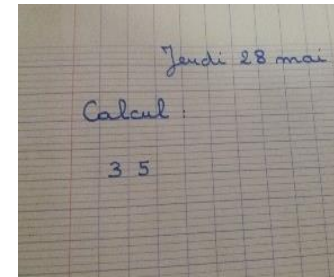 Jeudi 28 mai
Calcul :
3 5